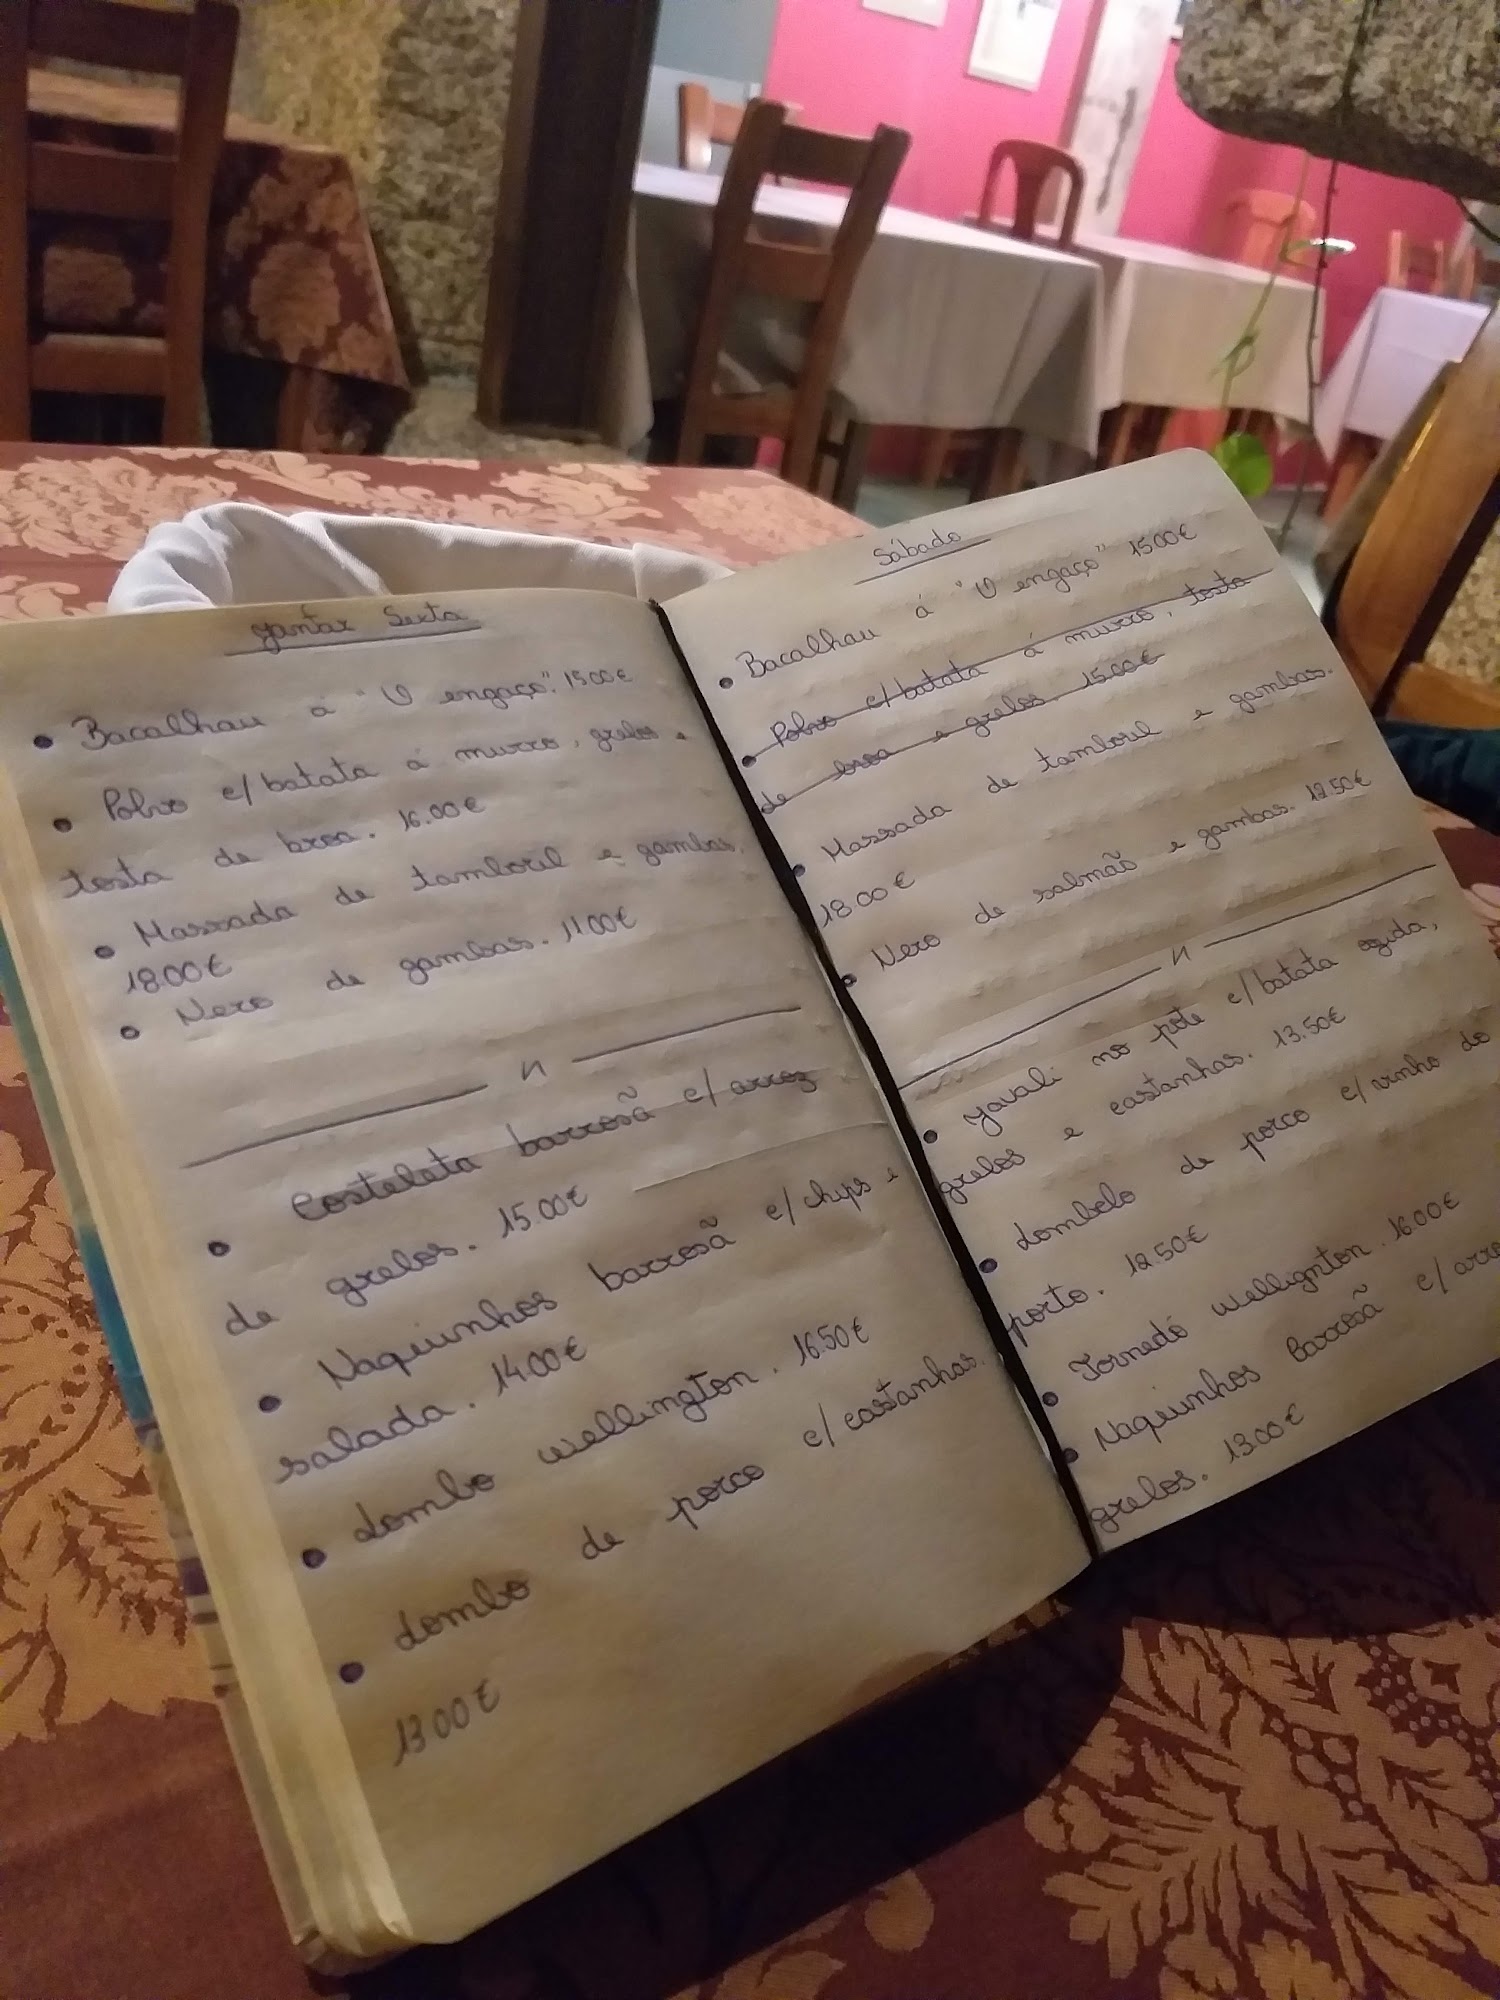 Jantar Sexta
• Bacalhau á "O engaço". 15.00€
• Polvo c/batata á murro, grelos e
tosta de broa. 16.00€
• Massada de tamboril e gambas.
18.00€
• Nero de gambas. 11.00€
n
• Costeleta barrosã c/arroz
de grelos. 15.00€
• Naquinhos barrosã c/chips e
salada. 14.00€
• Lombo wellington. 16.50€
• Lombo de porco c/castanhas.
13.00€
Sábado
• Bacalhau á "O engaço" 15.00€
• Polvo c/batata á murro, tosta
de broa e grelos. 15.00€
• Massada de tamboril e gambas.
18.00€
• Nero de salmão e gambas. 12.50€
n
• Javali no pote c/batata cozida,
grelos e castanhas. 13.50€
• Lombelo de porco c/vinho do
porto. 12.50€
• Tornedó wellignton. 16.00€
• Naquinhos barrosã c/arro
grelos. 13.00€